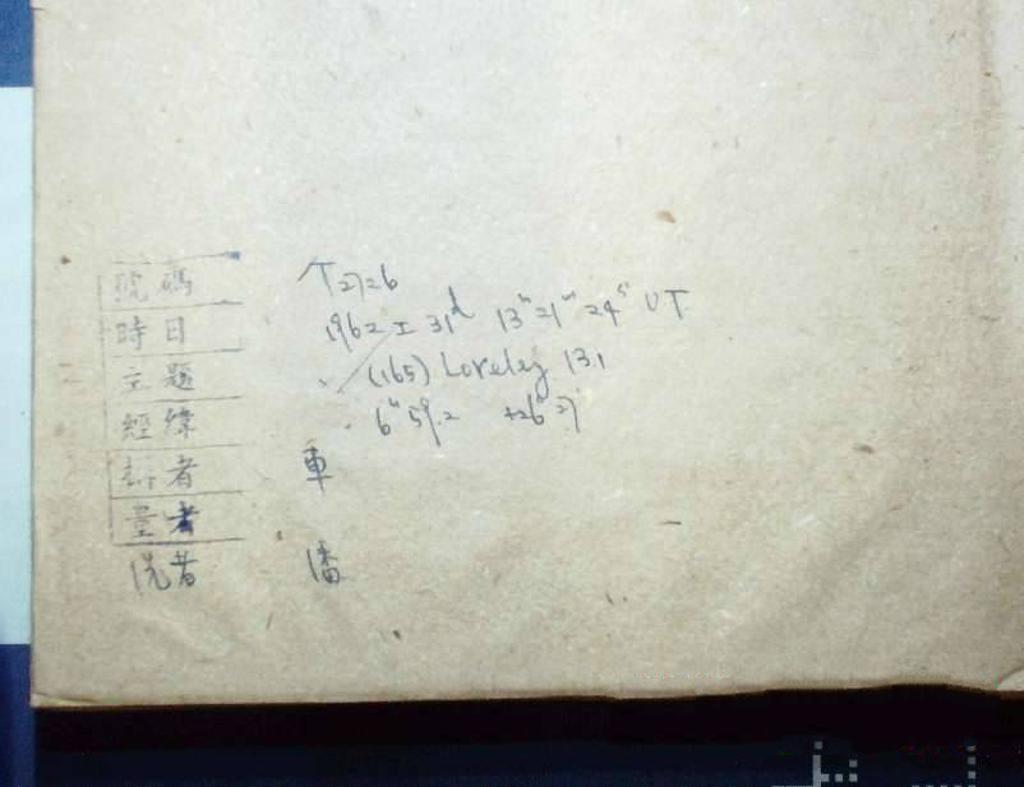 號碼 T2726
時日 1962 I 31ᵈ 13ʰ 21ᵐ 24ˢ UT
主題 (165) Loreley 13.1
經緯 6ʰ 59.2 +26° 27'
者 車
量者
洗者 潘